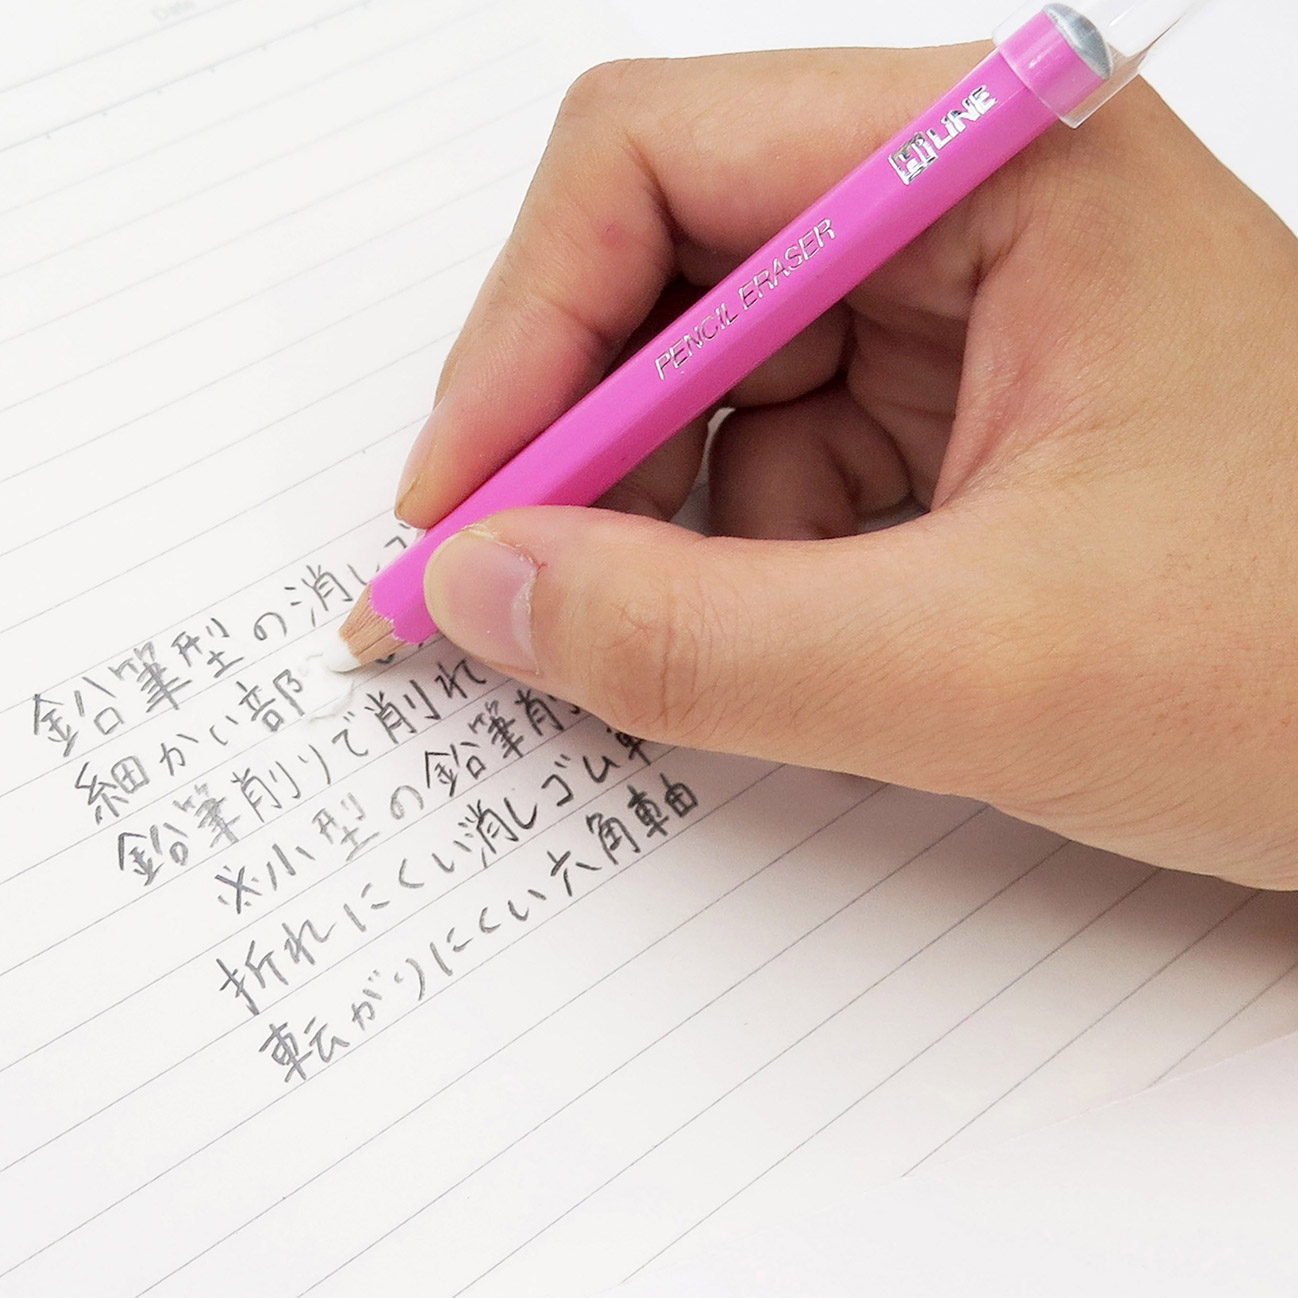 Date
HiLiNE
PENCIL ERASER
鉛筆型の消しゴ
細かい部
鉛筆削りで削れ
※小型の鉛筆削
折れにくい消しゴム
転がりにくい六角軸